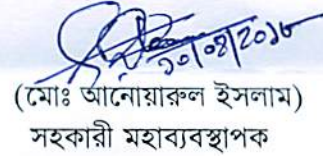 ১০/০৪/২০১৮
(মোঃ আনোয়ারুল ইসলাম)
সহকারী মহাব্যবস্থাপক